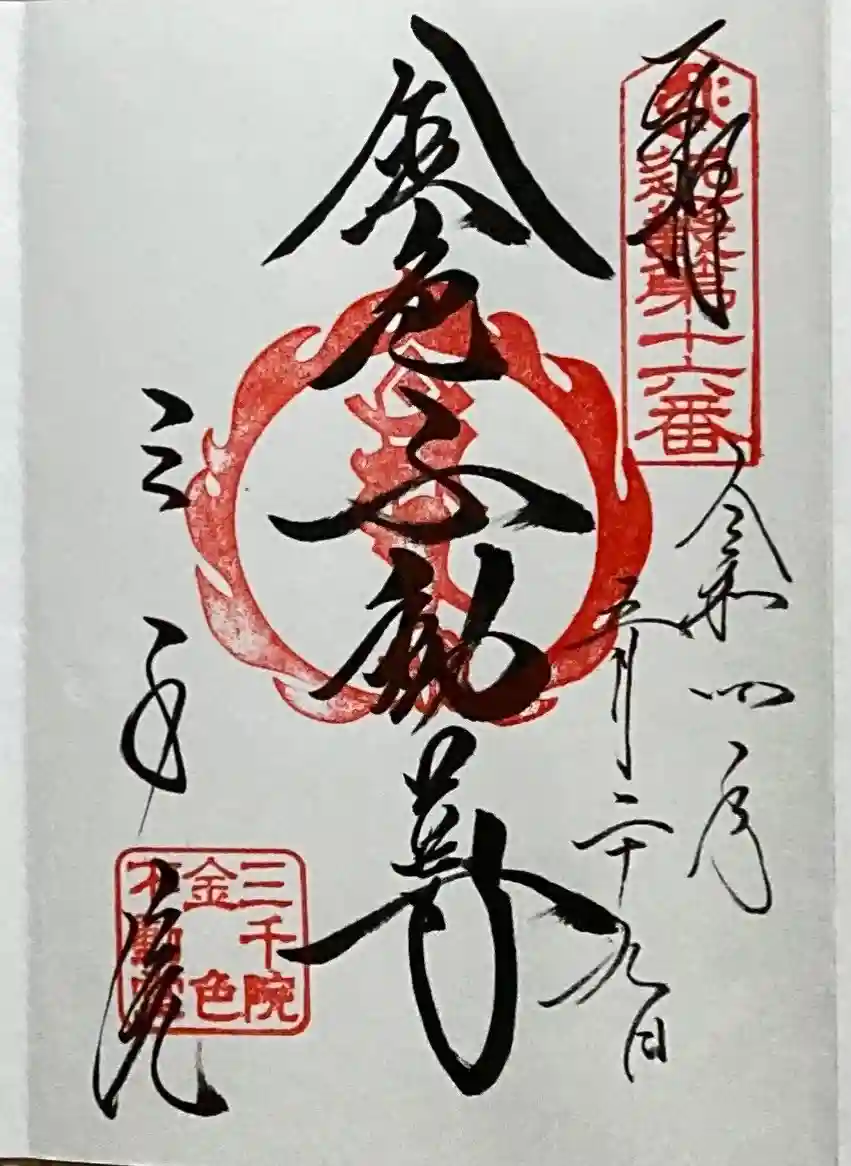 奉拝
近畿第十六番
令和四年
五月二十九日
金色不動尊
三千院
三千院
金色
不動堂